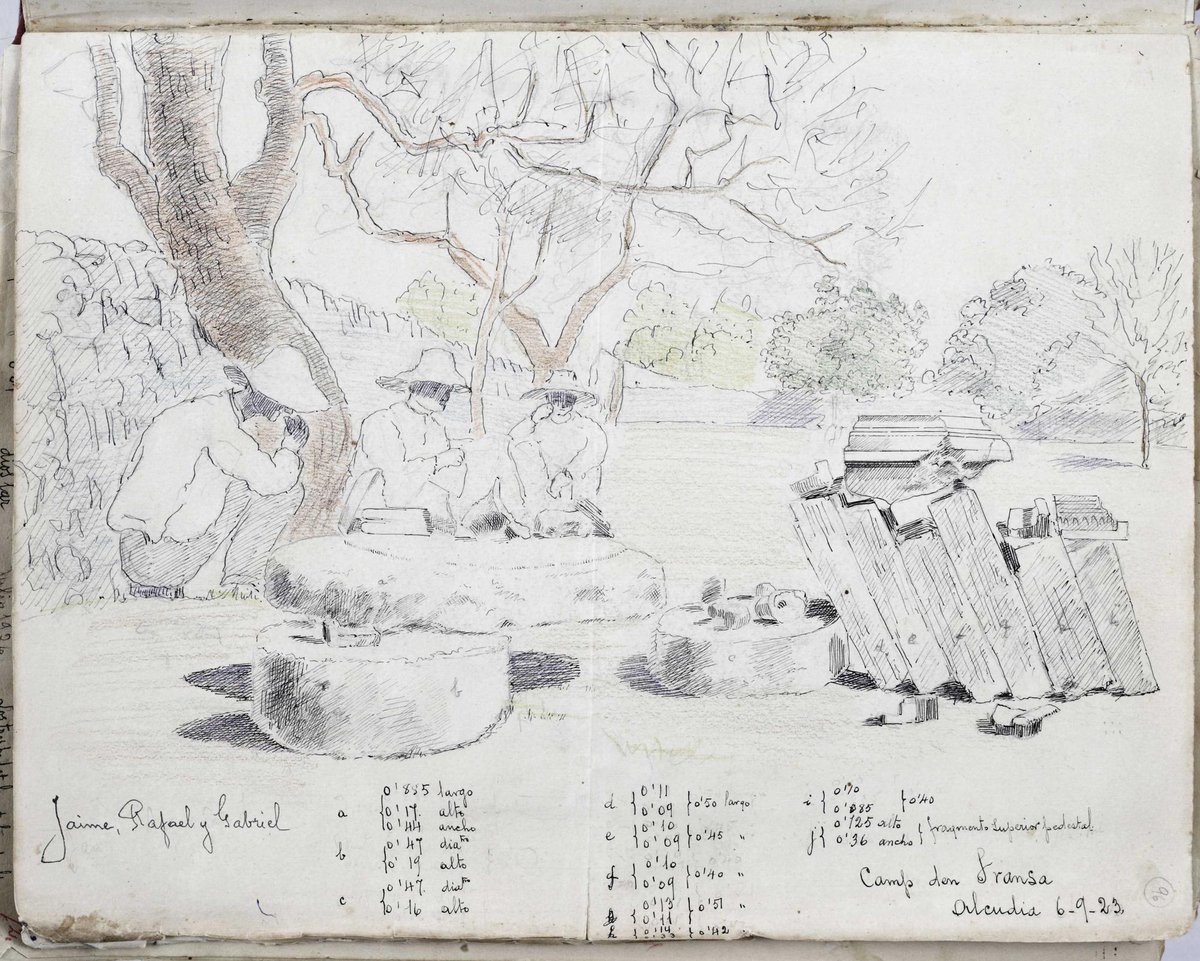 Jaime, Rafael y Gabriel
a { 0'885 largo
0'17. alto
0'44 ancho
b { 0'47 diatro
0'19 alto
c { 0'47. diatro
0'16 alto
d { 0'11
0'09 } 0'50 largo
e { 0'10
0'09 } 0'45 "
f { 0'10
0'09 } 0'40 "
g { 0'13
0'11 } 0'51 "
h { 0'14 } 0'42 "
i { 0'10
0'085 } 0'40
j { 0'125 alto
0'36 ancho } fragmento superior pedestal
Camp den Fransa
Alcudia 6-9-23